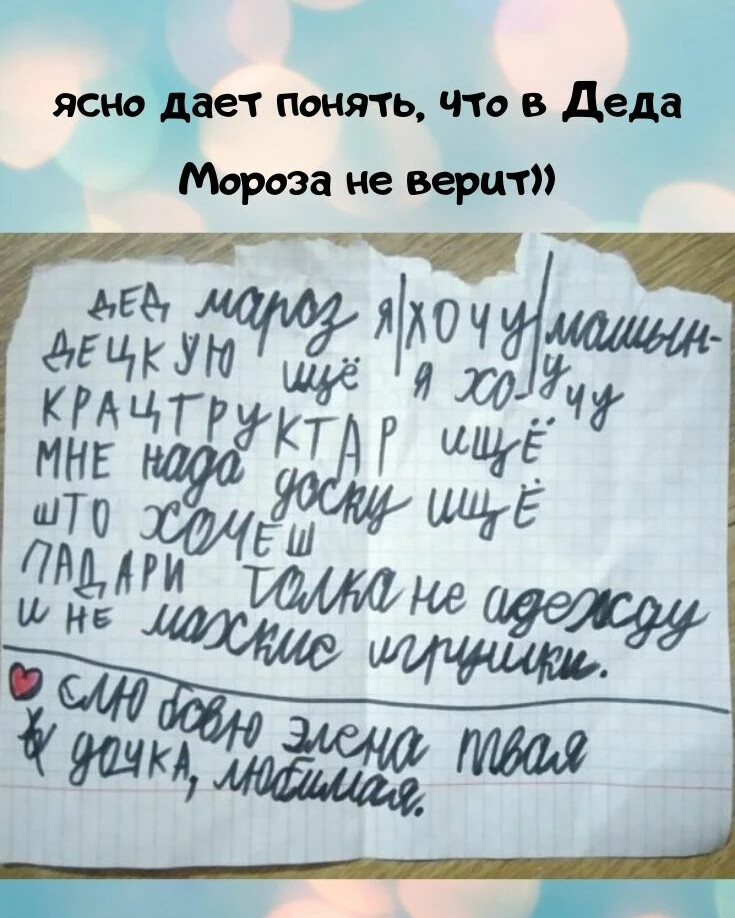 ясно дает понять, что в Деда
Мороза не верит))
ДЕД мароз я|хочу|машын-
ДЕЦКУЮ ищё я хо-учу
КРАЦТРУКТАР ищЁ
МНЕ нада доску ищЁ
што хочеш
ПАДАРИ толка не адежду
и не мяхкие игрушки.
слюбовю элена твая
дочка, любимая.